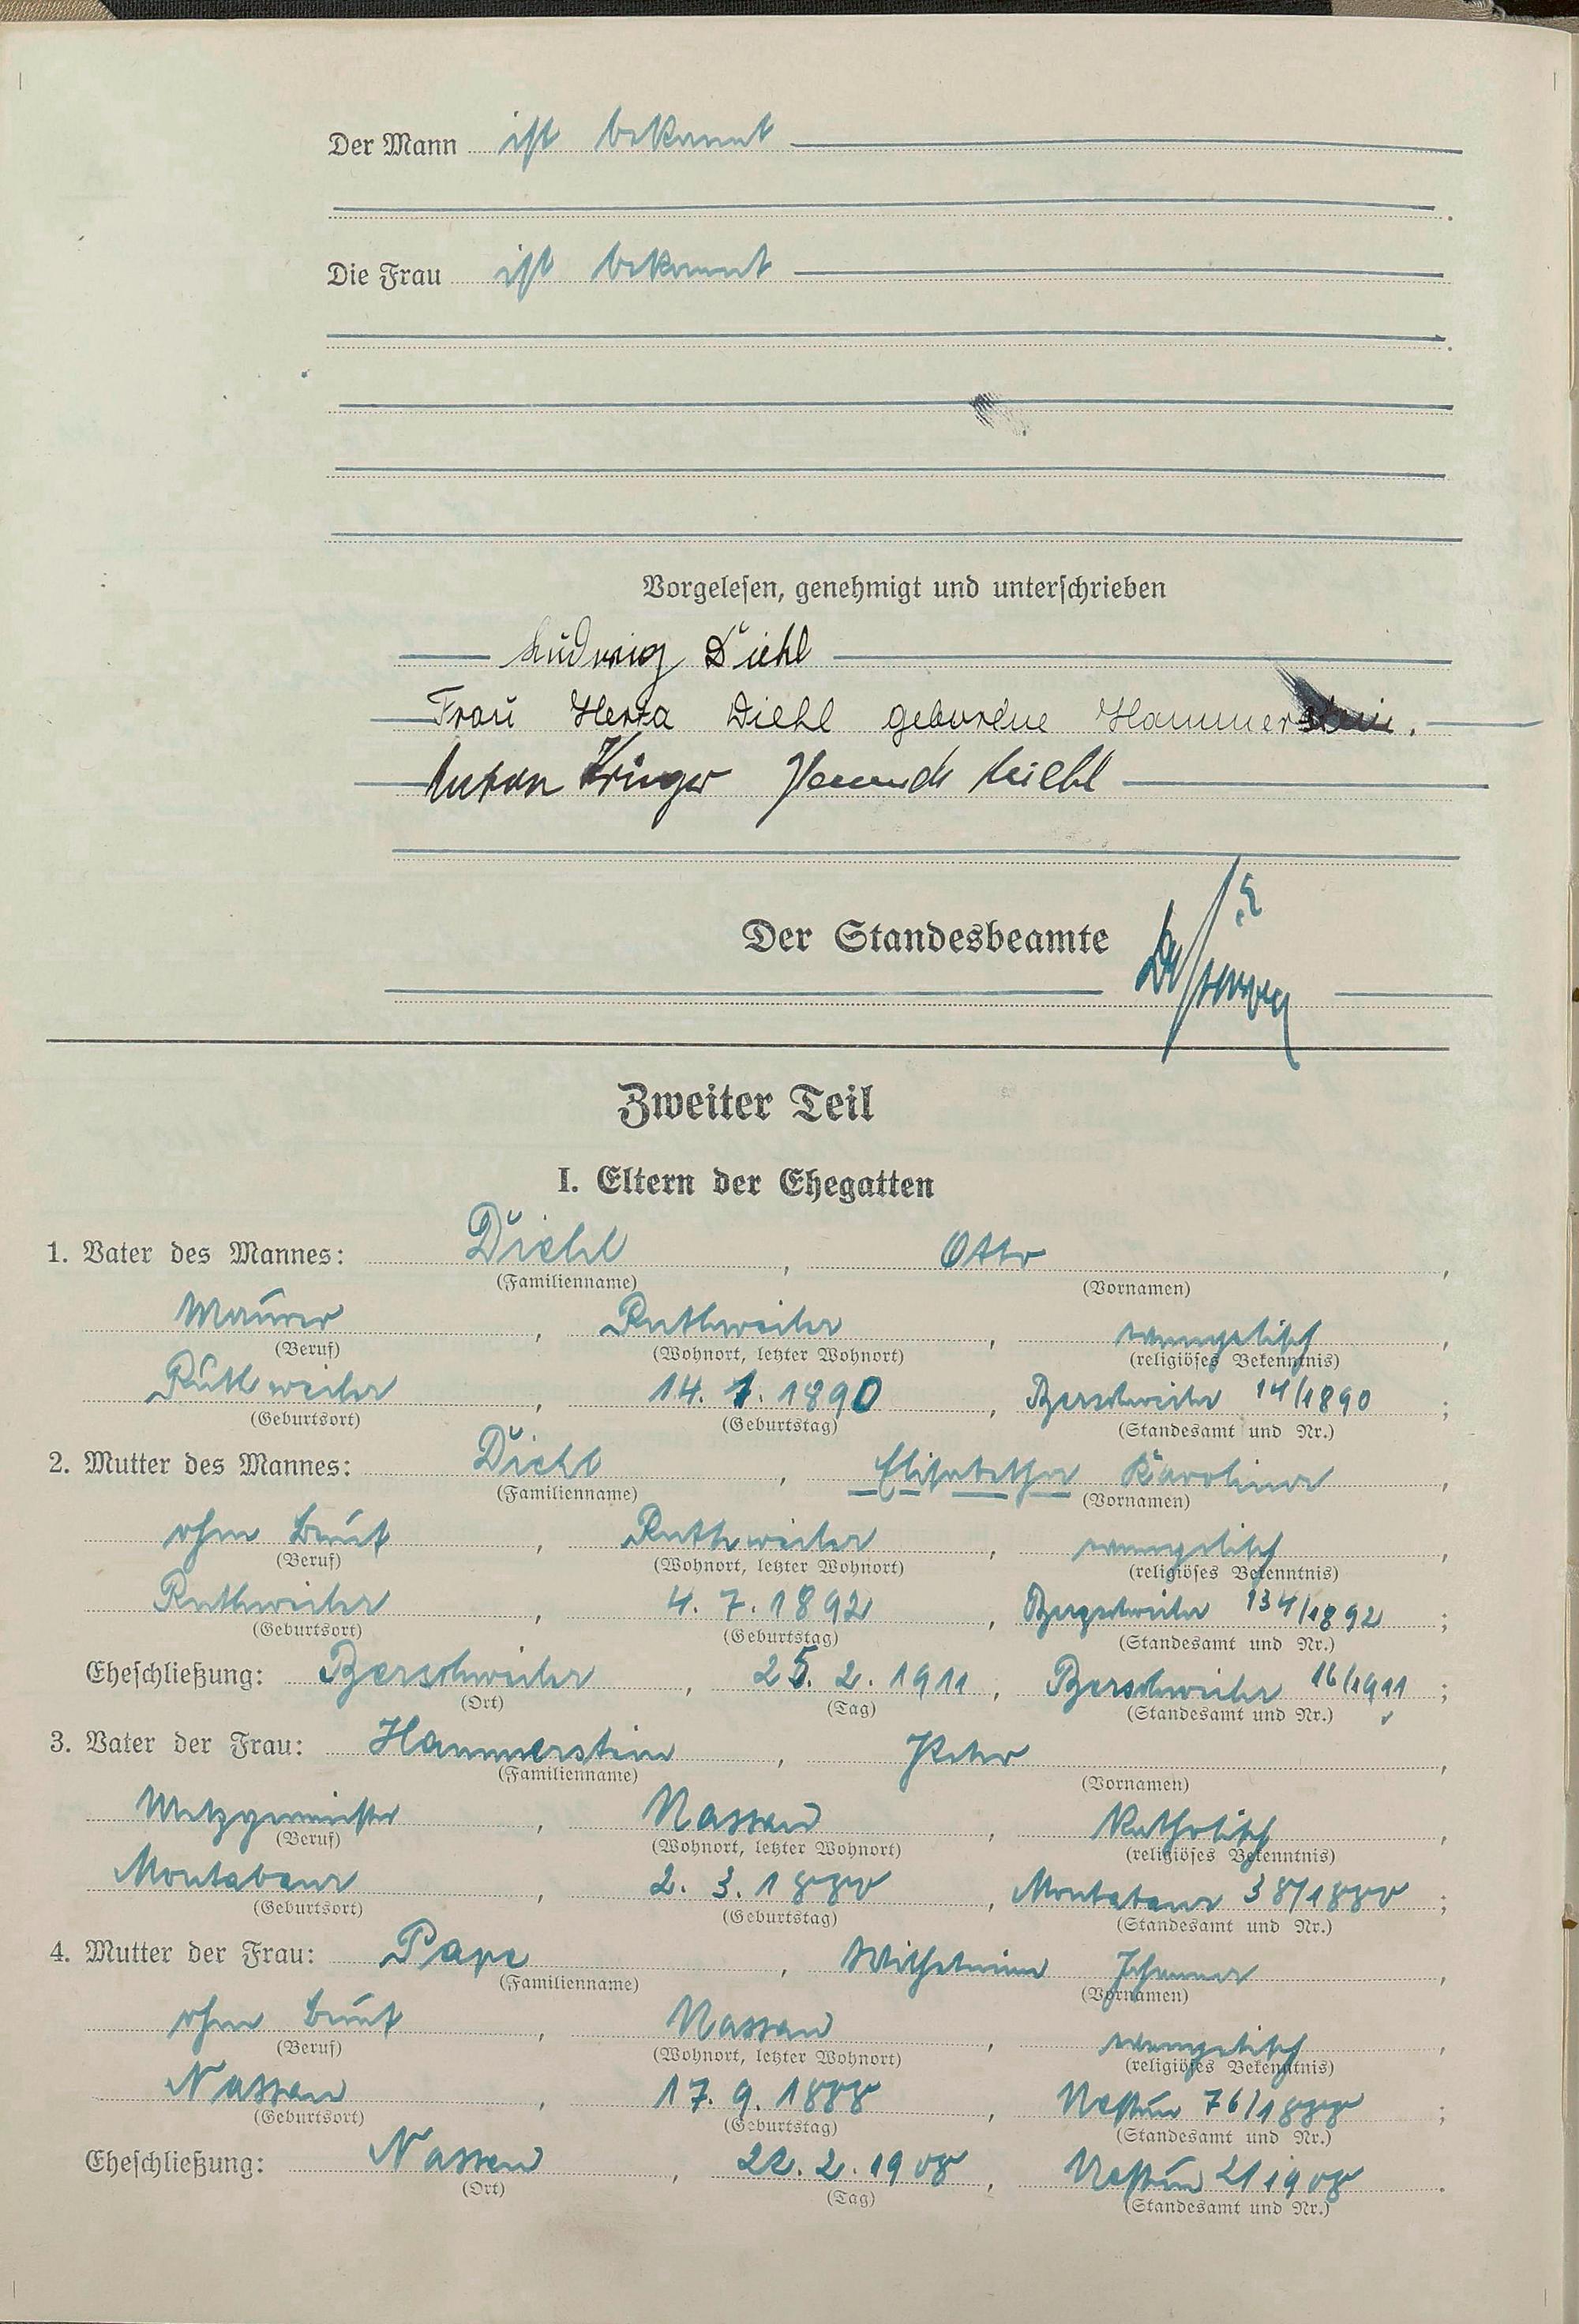 Der Mann ist bekannt
Die Frau ist bekannt
Vorgelesen, genehmigt und unterschrieben
Ludwig Diehl
Frau Herta Diehl geborene Hammerstein.
Anton Krüger Diehl
Der Standesbeamte
Zweiter Teil
I. Eltern der Ehegatten
1. Vater des Mannes: Diehl, Otto,
(Familienname) (Vornamen)
Maurer, Ruthweiler, evangelisch,
(Beruf) (Wohnort, letzter Wohnort) (religiöses Bekenntnis)
Ruthweiler, 14. 1. 1890, Berschweiler 14/1890;
(Geburtsort) (Geburtstag) (Standesamt und Nr.)
2. Mutter des Mannes: Diehl, Elisabetha Karoline,
(Familienname) (Vornamen)
ohne Beruf, Ruthweiler, evangelisch,
(Beruf) (Wohnort, letzter Wohnort) (religiöses Bekenntnis)
Ruthweiler, 4. 7. 1892, Berschweiler 134/1892;
(Geburtsort) (Geburtstag) (Standesamt und Nr.)
Eheschließung: Berschweiler, 25. 2. 1911, Berschweiler 16/1911;
(Ort) (Tag) (Standesamt und Nr.)
3. Vater der Frau: Hammerstein, Peter,
(Familienname) (Vornamen)
Metzgermeister, Nassau, katholisch,
(Beruf) (Wohnort, letzter Wohnort) (religiöses Bekenntnis)
Montabaur, 2. 3. 1880, Montabaur 38/1880;
(Geburtsort) (Geburtstag) (Standesamt und Nr.)
4. Mutter der Frau: Pape, Wilhelmine Johanna,
(Familienname) (Vornamen)
ohne Beruf, Nassau, evangelisch,
(Beruf) (Wohnort, letzter Wohnort) (religiöses Bekenntnis)
Nassau, 17. 9. 1888, Nassau 76/1888;
(Geburtsort) (Geburtstag) (Standesamt und Nr.)
Eheschließung: Nassau, 22. 2. 1908, Nassau 2/1908.
(Ort) (Tag) (Standesamt und Nr.)